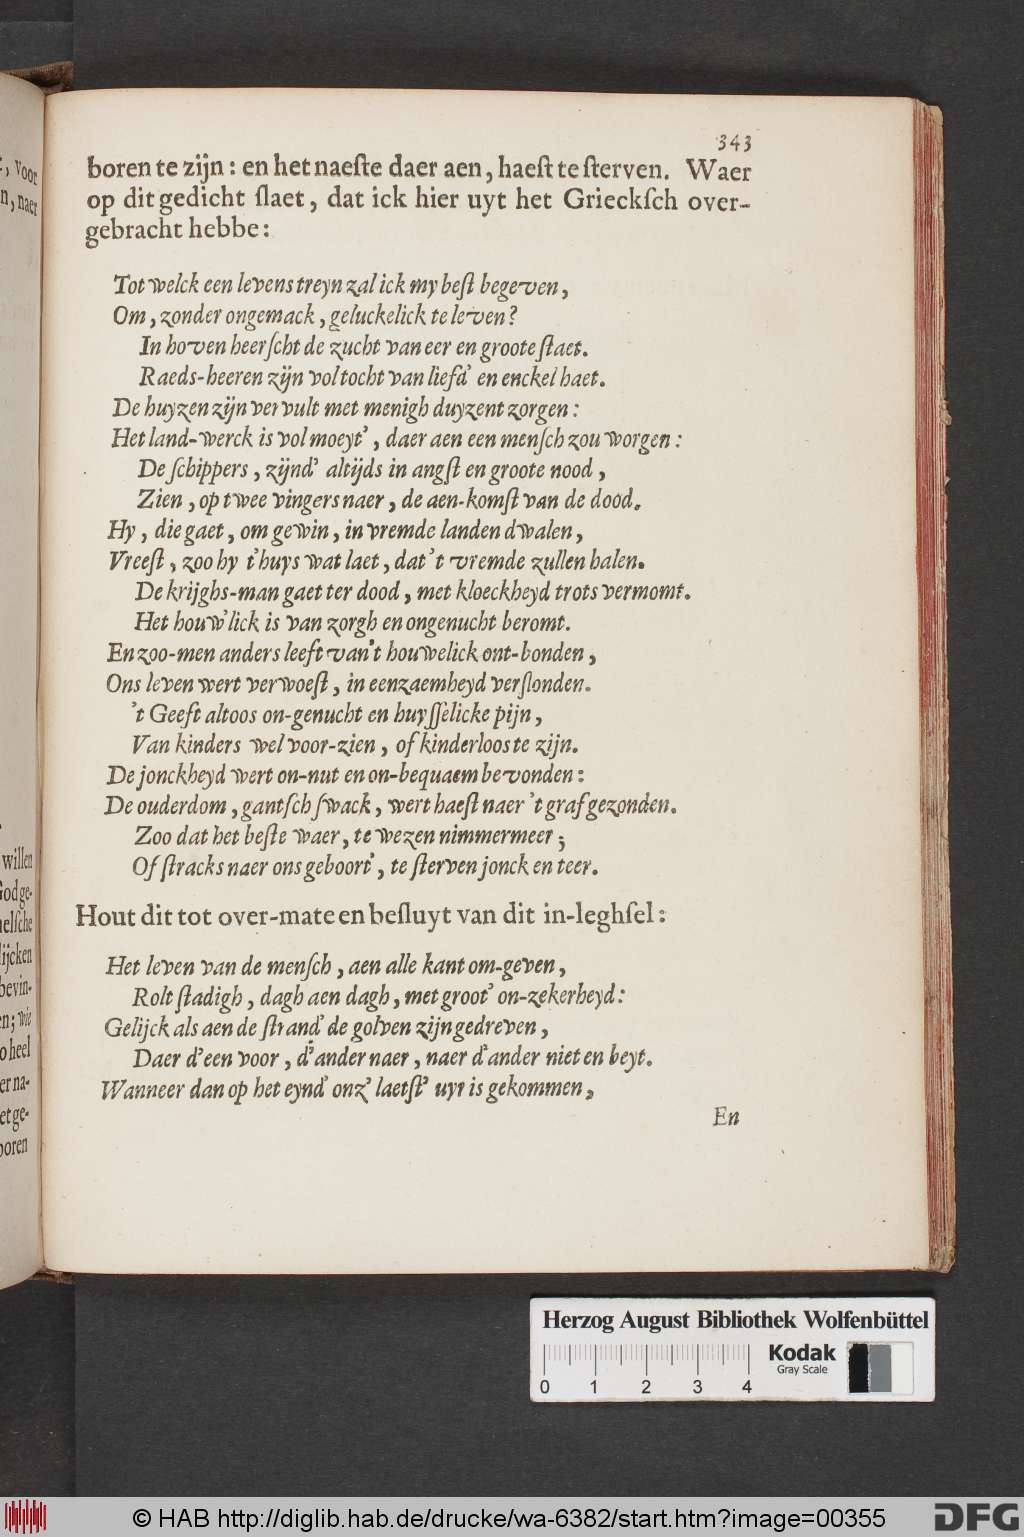 343
boren te zijn: en het naeſte daer aen, haeſt te ſterven. Waer
op dit gedicht ſlaet, dat ick hier uyt het Grieckſch over-
gebracht hebbe:
Tot welck een levens treyn zal ick my beſt begeven,
Om, zonder ongemack, geluckelick te leven?
In hoven heerſcht de zucht van eer en groote ſtaet.
Raeds-heeren zijn vol tocht van liefd' en enckel haet.
De huyzen zijn vervult met menigh duyzent zorgen:
Het land-werck is vol moeyt', daer aen een menſch zou worgen:
De ſchippers, zijnd' altijds in angſt en groote nood,
Zien, op twee vingers naer, de aen-komſt van de dood.
Hy, die gaet, om gewin, in vremde landen dwalen,
Vreeſt, zoo hy t'huys wat laet, dat 't vremde zullen halen.
De krijghs-man gaet ter dood, met kloeckheyd trots vermomt.
Het houw'lick is van zorgh en ongenucht beromt.
En zoo-men anders leeft van't houwelick ont-bonden,
Ons leven wert verwoeſt, in eenzaemheyd verſlonden.
't Geeft altoos on-genucht en huyſſelicke pijn,
Van kinders wel voor-zien, of kinderloos te zijn.
De jonckheyd wert on-nut en on-bequaem bevonden:
De ouderdom, gantſch ſwack, wert haeſt naer 't graf gezonden.
Zoo dat het beſte waer, te wezen nimmermeer;
Of ſtracks naer ons geboort', te ſterven jonck en teer.
Hout dit tot over-mate en beſluyt van dit in-leghſel:
Het leven van de menſch, aen alle kant om-geven,
Rolt ſtadigh, dagh aen dagh, met groot' on-zekerheyd:
Gelijck als aen de ſtrand' de golven zijn gedreven,
Daer d'een voor, d'ander naer, naer d'ander niet en beyt.
Wanneer dan op het eynd' onz' laetſt' uyr is gekommen,
En
, voor
n, naer
willen
God ge-
helſche
lijcken
bevin-
en; wie
o heel
er na-
et ge-
boren
Herzog August Bibliothek Wolfenbüttel
Kodak
Gray Scale
0 1 2 3 4
© HAB http://diglib.hab.de/drucke/wa-6382/start.htm?image=00355
DFG